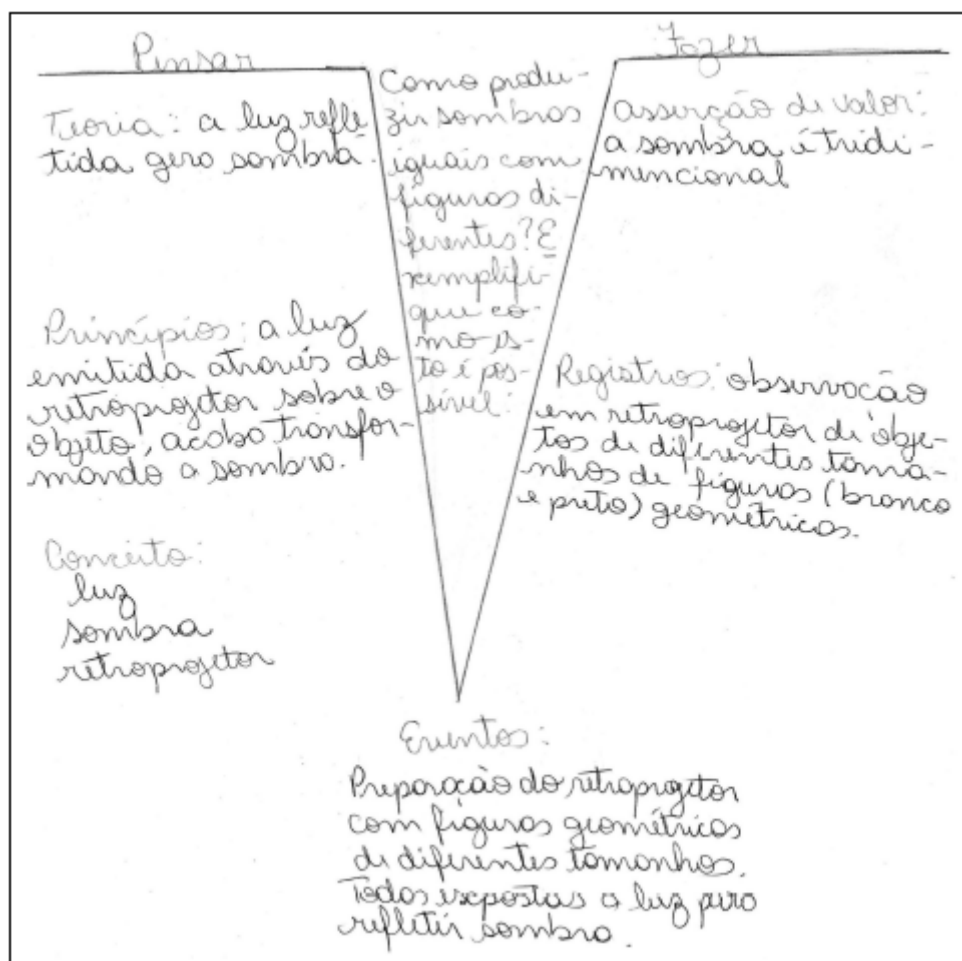 Pensar
Teoria: a luz refle-
tida gera sombra.
Princípios: a luz
emitida através do
retroprojetor sobre o
objeto, acaba transfor-
mando a sombra.
Conceito:
luz
sombra
retroprojetor
Como produ-
zir sombras
iguais com
figuras di-
ferentes? E
xemplifi-
que co-
mo is-
to é pos-
sível:
Fazer
Asserção de valor:
a sombra é tridi-
mencional
Registros: observação
em retroprojetor de obje-
tos de diferentes tama-
nhos de figuras (branco
e preto) geométricas.
Eventos:
Preparação do retroprojetor
com figuras geométricas
de diferentes tamanhos.
Todas expostas a luz para
refletir sombra.